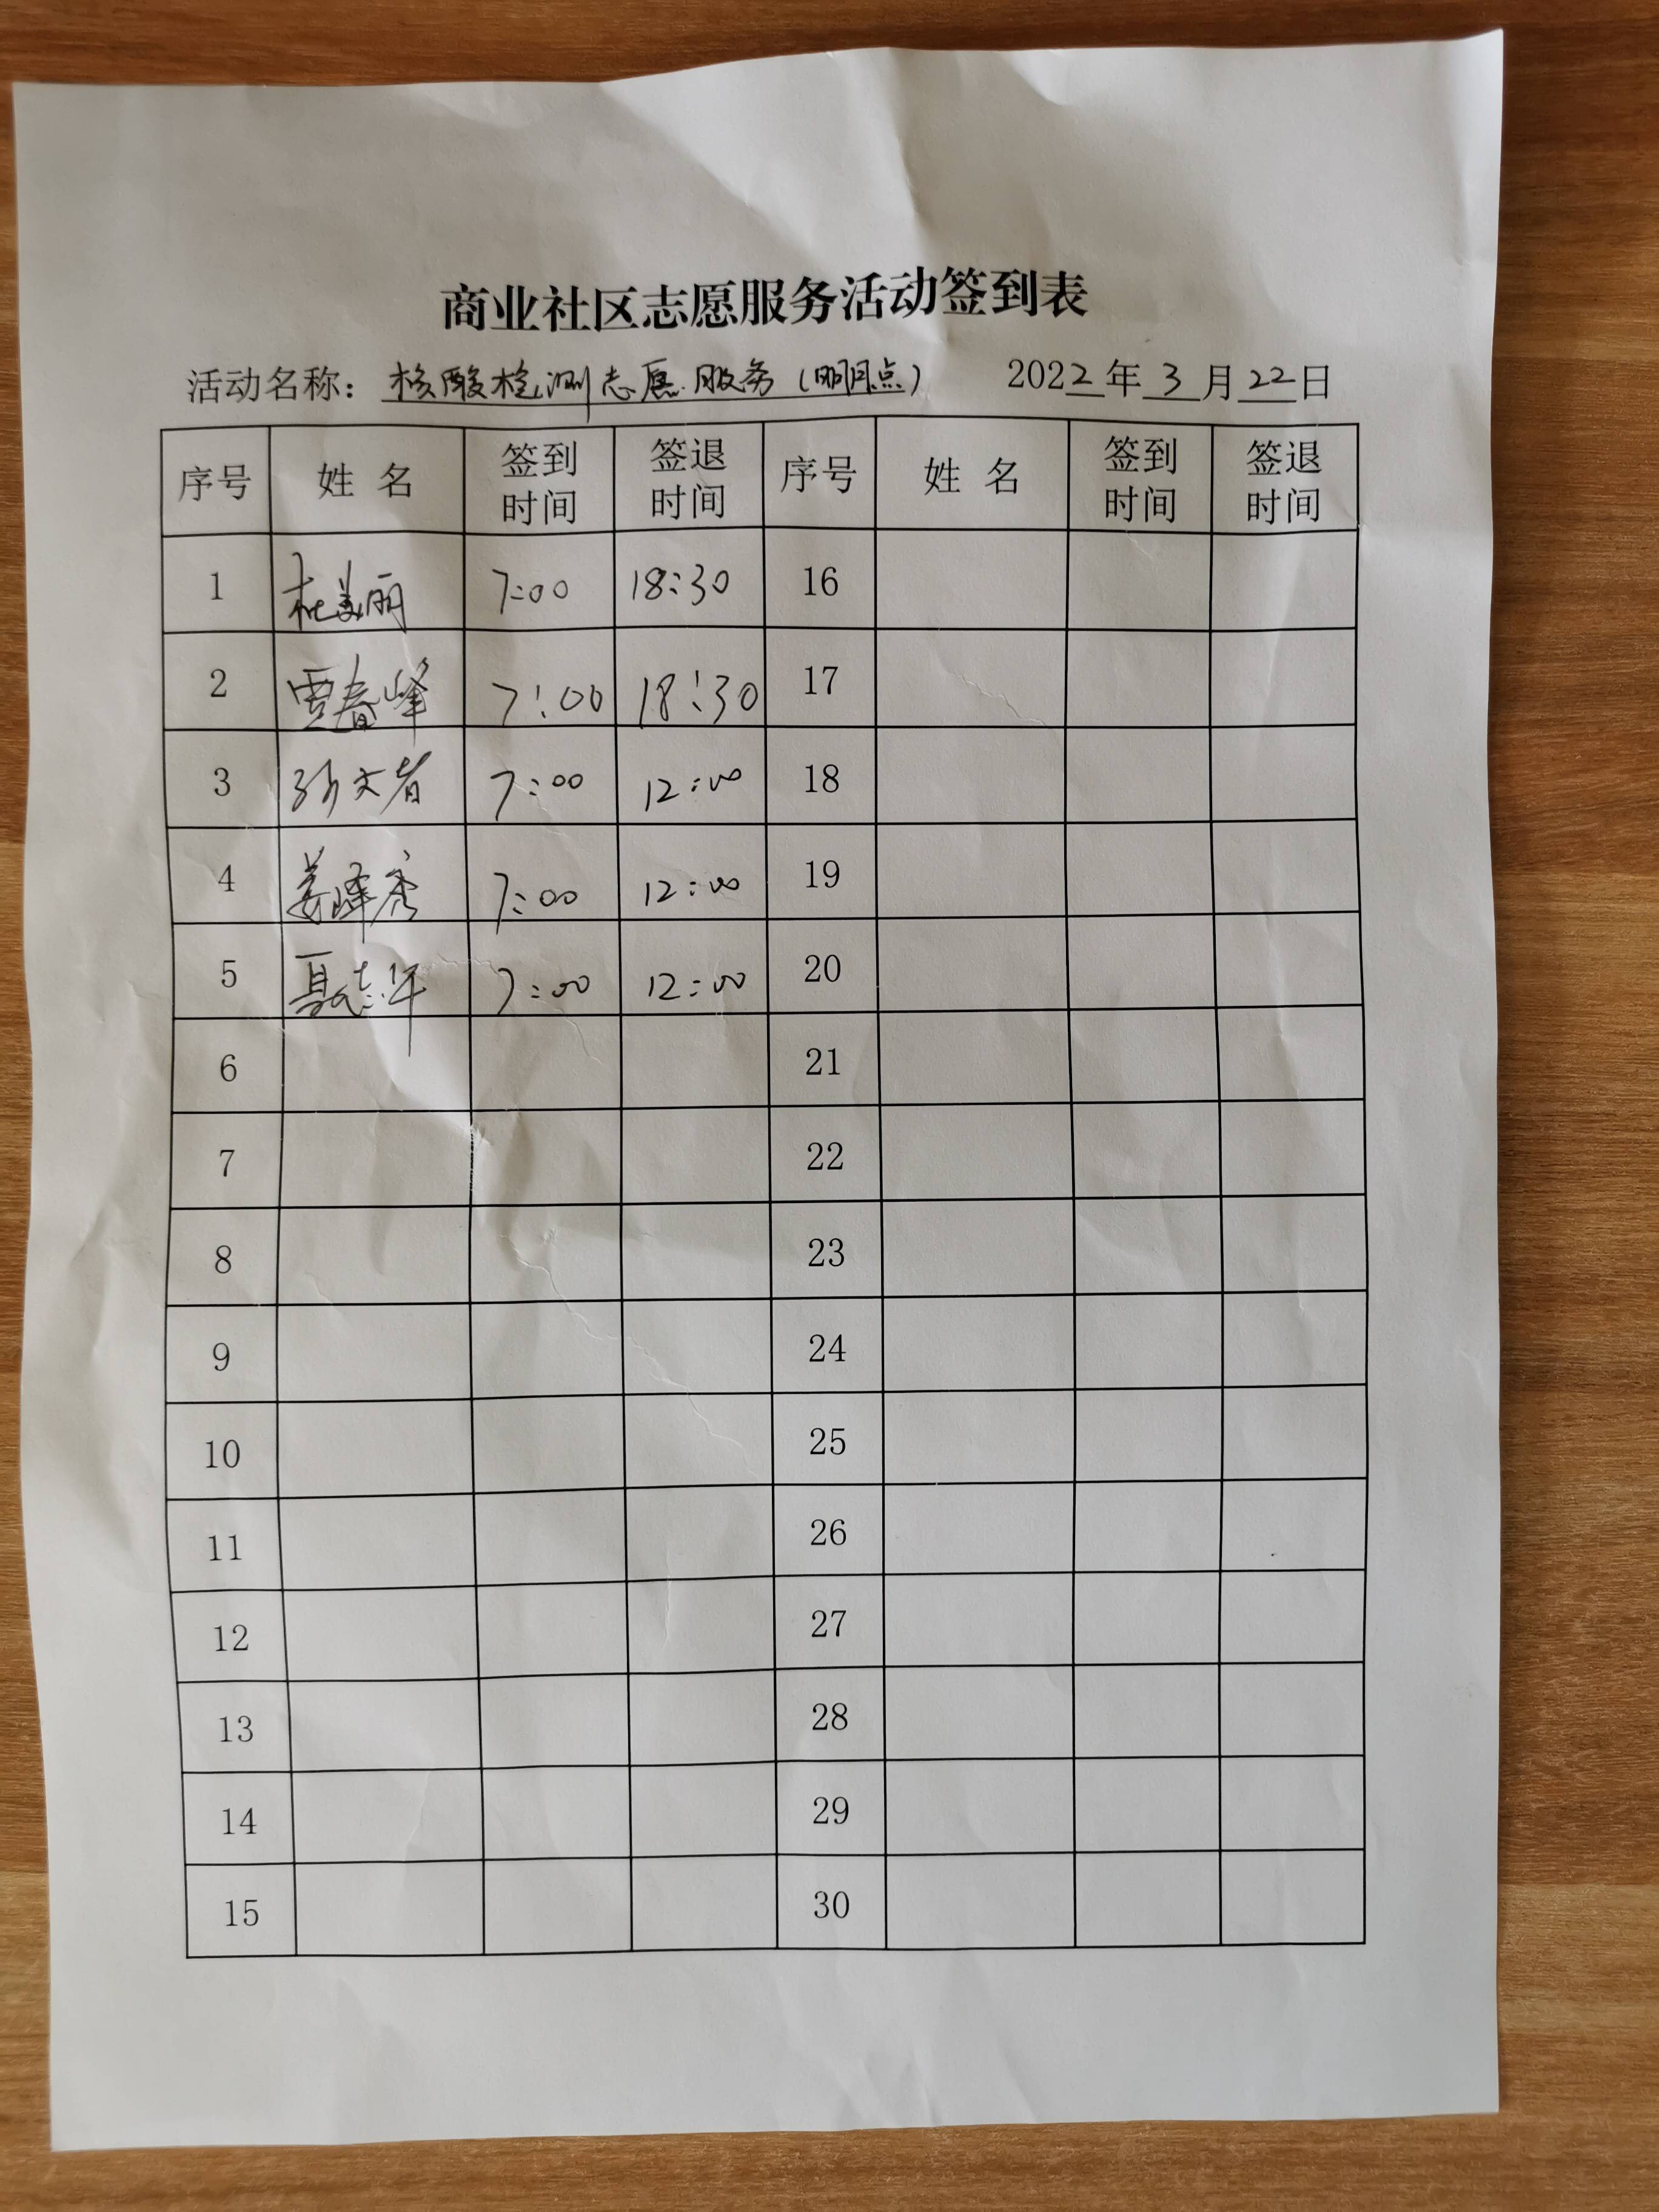 商业社区志愿服务活动签到表
活动名称：核酸检测志愿服务（明月点） 2022年3月22日
序号 姓名 签到时间 签退时间 序号 姓名 签到时间 签退时间
1 杜美丽 7:00 18:30 16
2 贾春峰 7:00 18:30 17
3 孙文 7:00 12:00 18
4 姜峰秀 7:00 12:00 19
5 夏志军 7:00 12:00 20
6 21
7 22
8 23
9 24
10 25
11 26
12 27
13 28
14 29
15 30